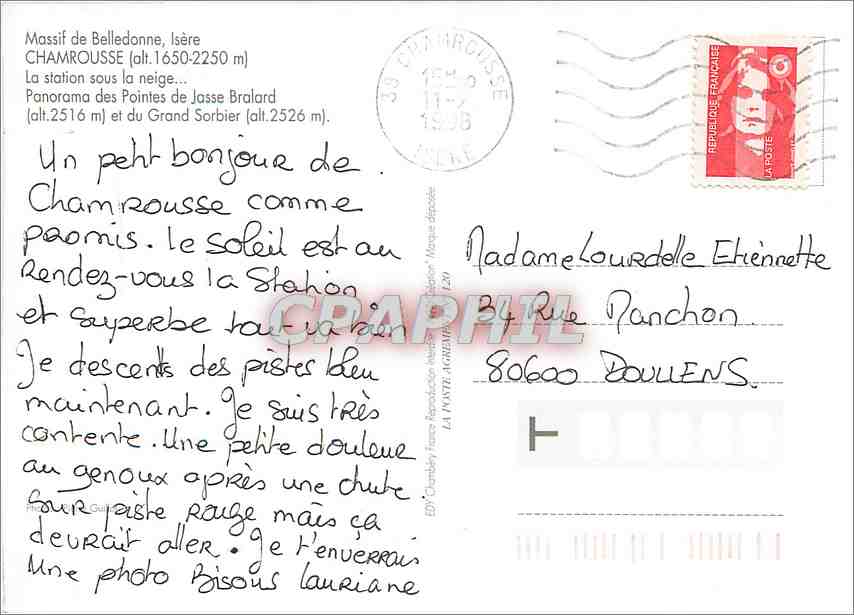 Massif de Belledonne, Isère
CHAMROUSSE (alt.1650-2250 m)
La station sous la neige...
Panorama des Pointes de Jasse Bralard
(alt.2516 m) et du Grand Sorbier (alt.2526 m).
Un petit bonjour de
Chamrousse comme
promis. Le soleil est au
rendez-vous la station
et superbe tout va bien
Je descents des pistes bleu
maintenant. Je suis très
contente. Une petite douleur
au genoux après une chute
sur piste rouge mais ça
devrait aller. Je t'enverrais
Une photo Bisous Lauriane
EDY Chambéry France Reproduction "Marque déposée
LA POSTE 120
CPAPHIL
38 CHAMROUSSE
1998
ISERE
REPUBLIQUE FRANÇAISE
LA POSTE
Madame Lourdelle Etiennette
34 Rue Manchon.
80600 DOULLENS.
T